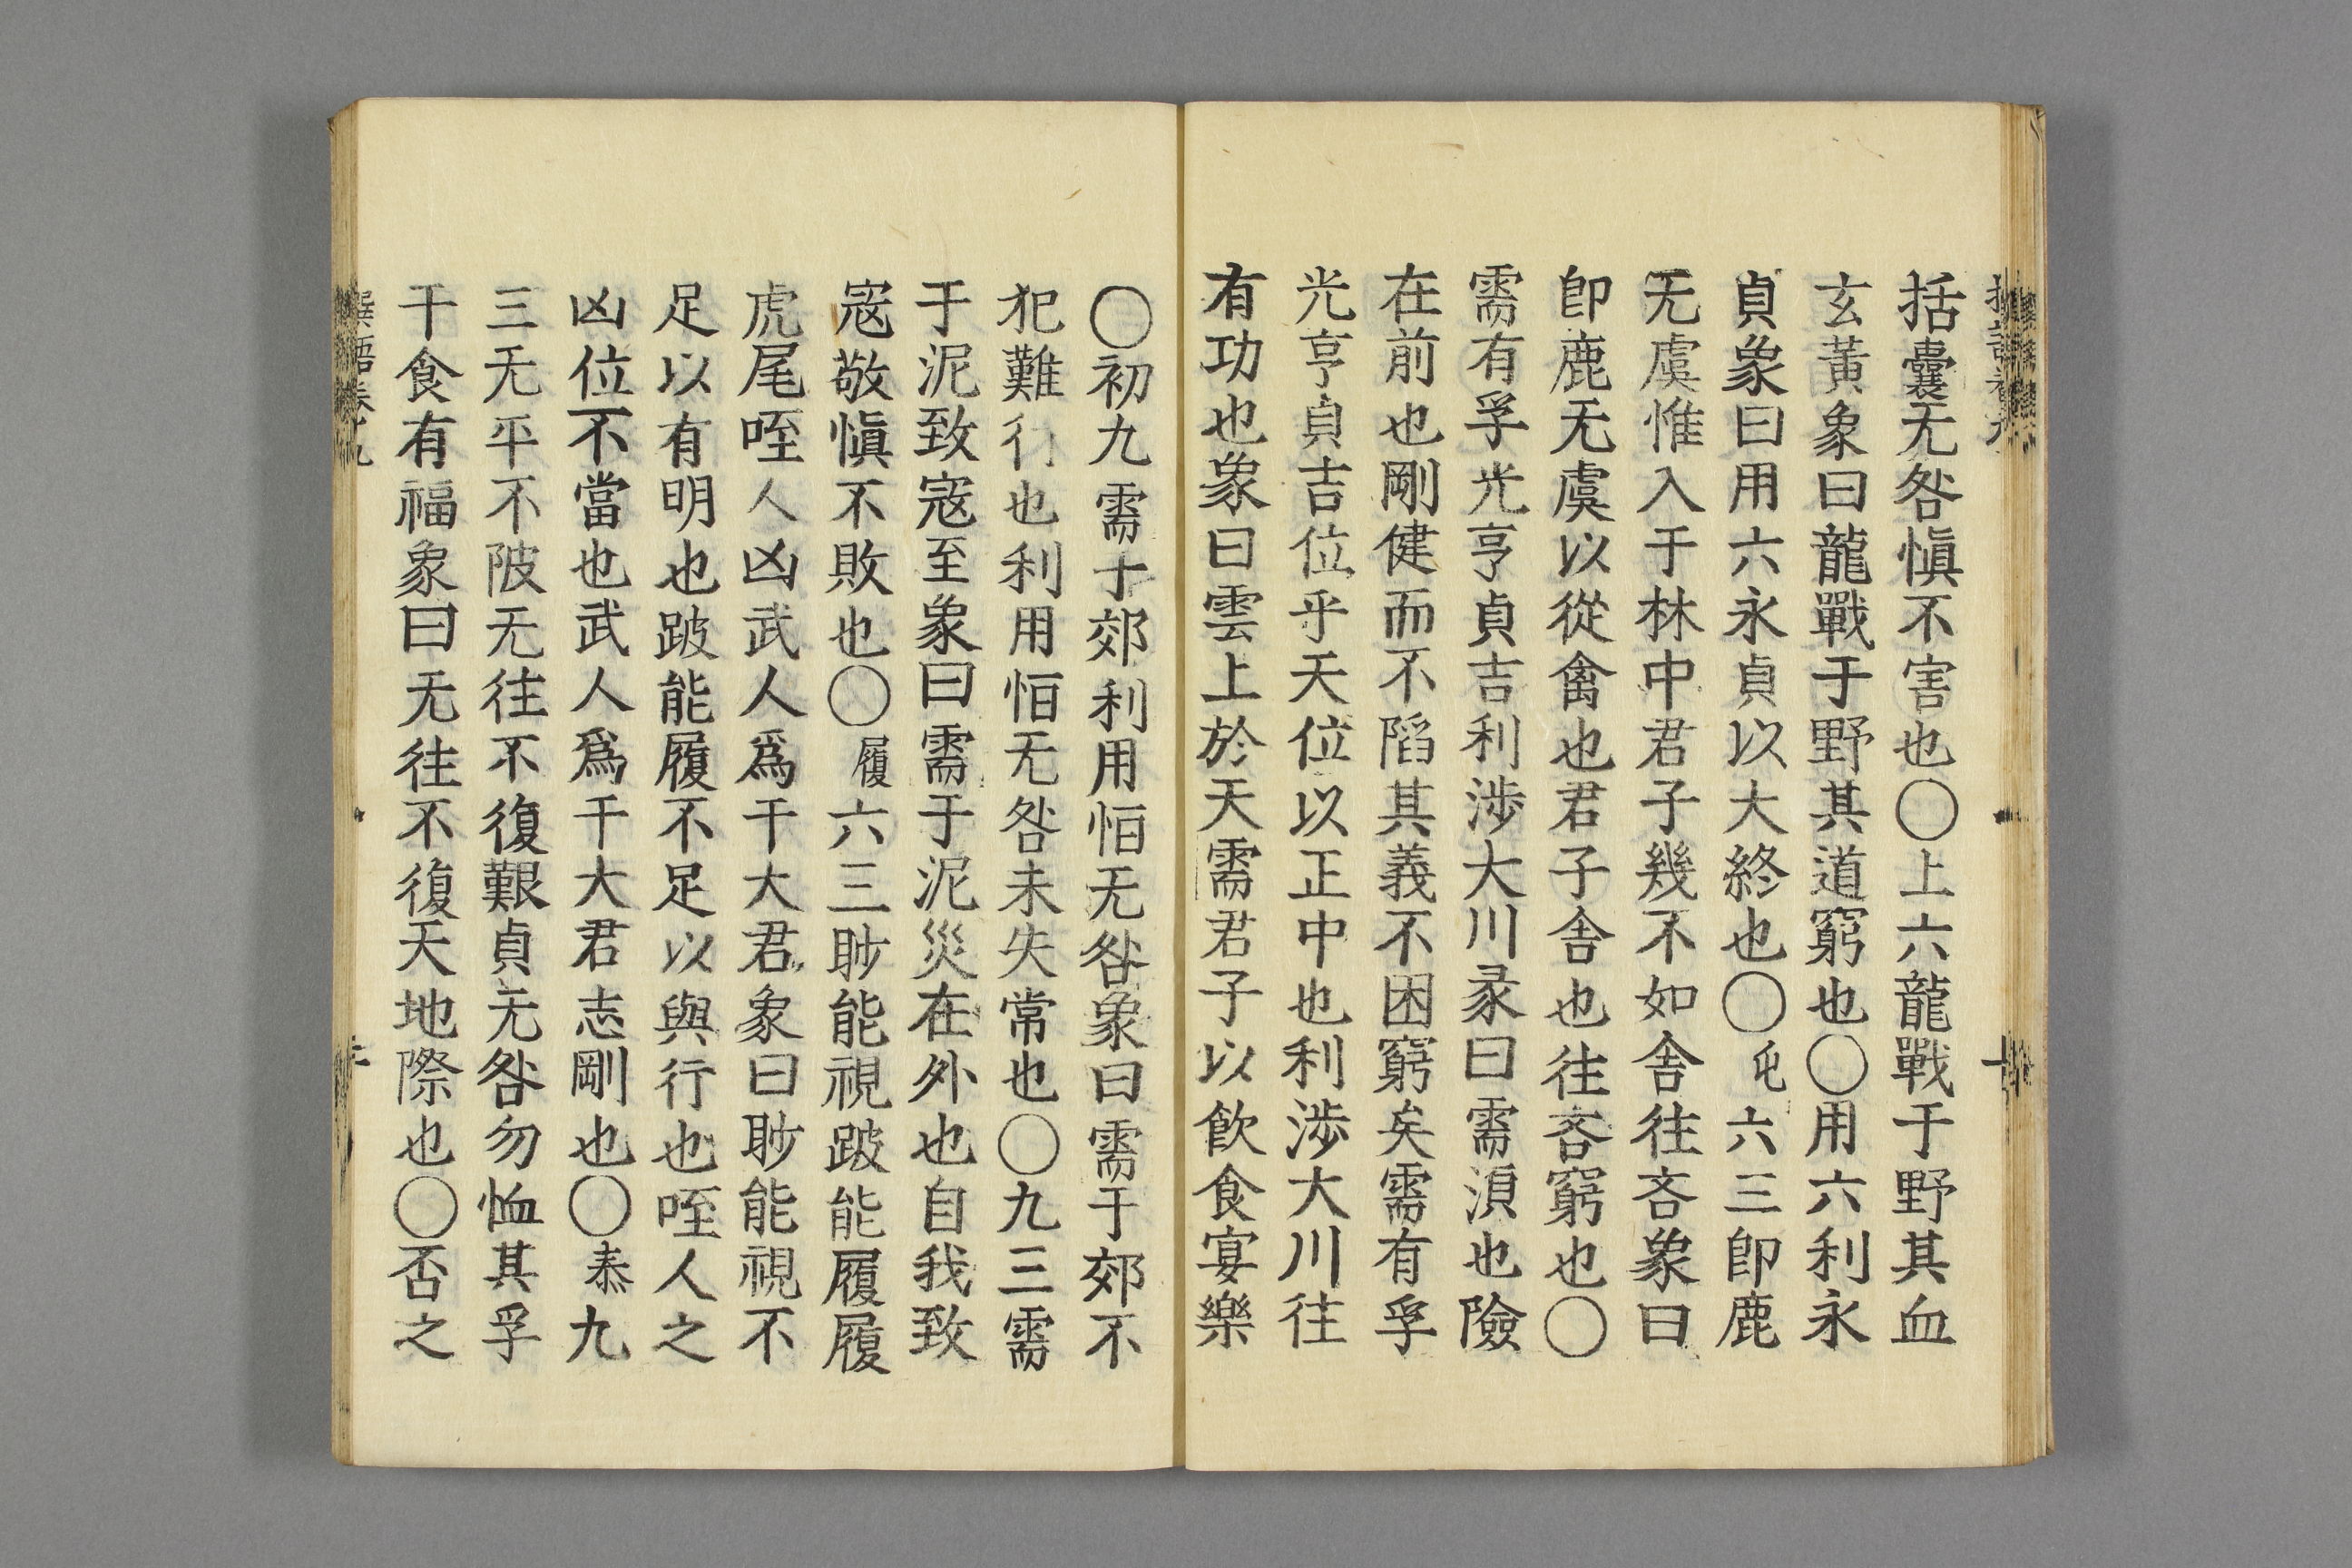 括囊无咎愼不害也〇上六龍戰于野其血
玄黃象曰龍戰于野其道窮也〇用六利永
貞象曰用六永貞以大終也〇屯六三卽鹿
无虞惟入于林中君子幾不如舍往吝象曰
卽鹿无虞以從禽也君子舍也往吝窮也〇
需有孚光亨貞吉利涉大川彖曰需湏也險
在前也剛健而不陷其義不困窮矣需有孚
光亨貞吉位乎天位以正中也利涉大川往
有功也象曰雲上於天需君子以飮食宴樂
〇初九需于郊利用恒无咎象曰需于郊不
犯難行也利用恒无咎未失常也〇九三需
于泥致寇至象曰需于泥災在外也自我致
寇敬愼不敗也〇履六三眇能視跛能履履
虎尾咥人凶武人爲于大君象曰眇能視不
足以有明也跛能履不足以與行也咥人之
凶位不當也武人爲于大君志剛也〇泰九
三无平不陂无往不復艱貞无咎勿恤其孚
于食有福象曰无往不復天地際也〇否之